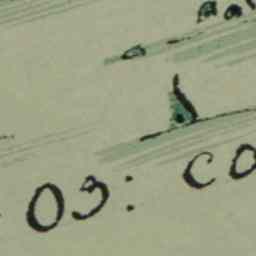 03: co